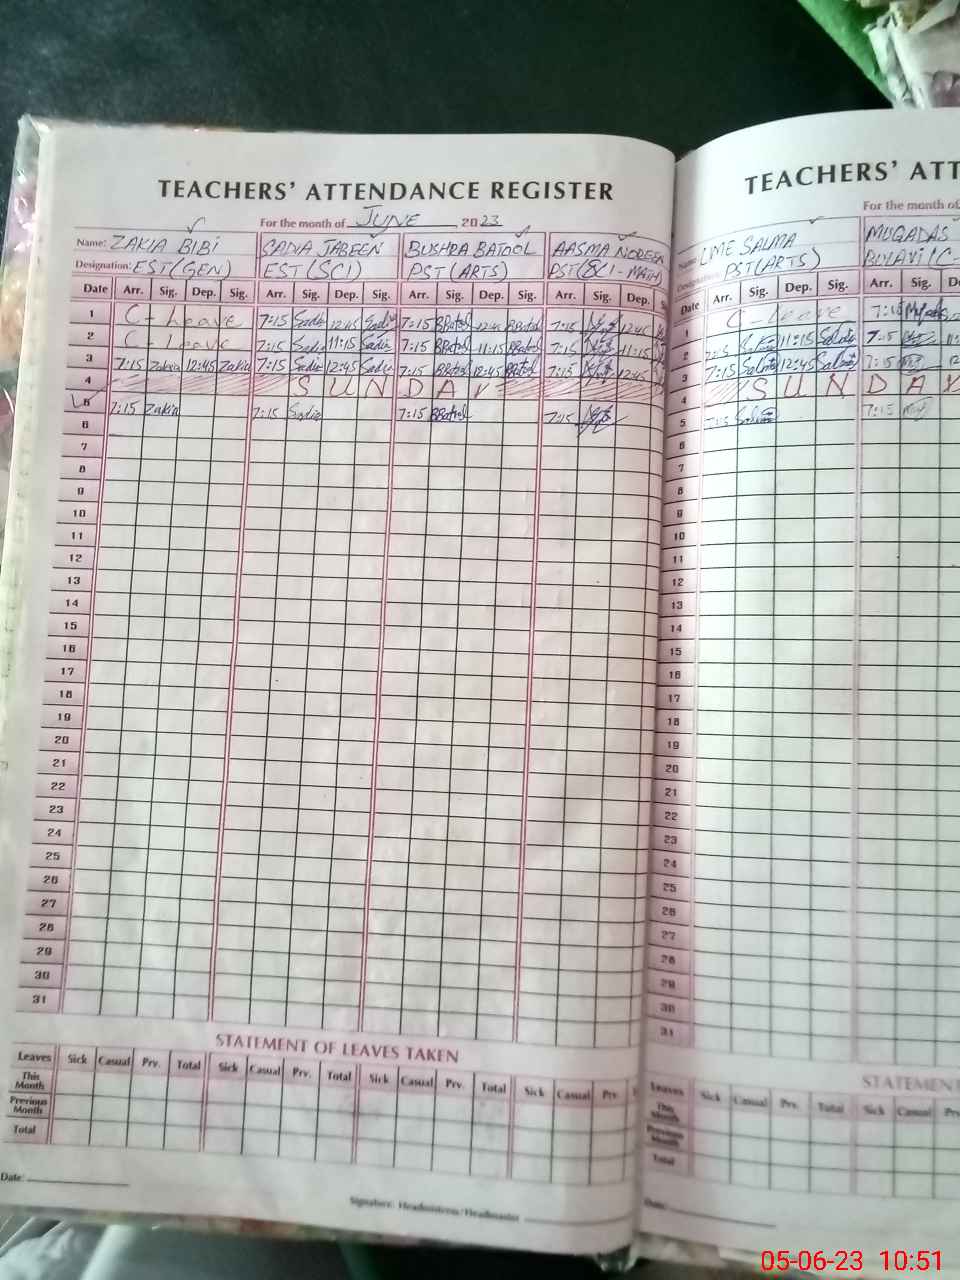 TEACHERS' ATTENDANCE REGISTER
For the month of JUNE 2023
Name: ZAKIA BIBI SADIA JABEEN BUSHRA BATOOL AASMA NOREEN
Designation: EST(GEN) EST(SCI) PST(ARTS) PST(SCI-MATH)
Date Arr. Sig. Dep. Sig. Arr. Sig. Dep. Sig. Arr. Sig. Dep. Sig. Arr. Sig. Dep.
1 C-Leave 7:15 Sadia 12:45 Sadia 7:15 BBatol 12:45 BBatol 7:15 12:45
2 C-Leave 7:15 Sadia 11:15 Sadia 7:15 BBatol 11:15 BBatol 7:15 11:15
3 7:15 Zakia 12:45 Zakia 7:15 Sadia 12:45 Sadia 7:15 BBatol 12:45 BBatol 7:15 12:45
4 SUNDAY
5 7:15 Zakia 7:15 Sadia 7:15 BBatol 7:15
6
7
8
9
10
11
12
13
14
15
16
17
18
19
20
21
22
23
24
25
26
27
28
29
30
31
STATEMENT OF LEAVES TAKEN
Leaves Sick Casual Prv. Total Sick Casual Prv. Total Sick Casual Prv. Total Sick Casual Prv.
This Month
Previous Month
Total
Date:
Signature: Headmistress/Headmaster
TEACHERS' ATT
For the month of
Name: UME SALMA MUQADAS
Designation: PST(ARTS)
Date Arr. Sig. Dep. Sig. Arr. Sig. D
1 C-Leave 7:15
2 7:15 Salma 11:15 Salma 7:15
3 7:15 Salma 12:45 Salma 7:15
4 SUNDAY
5 7:15 Salma 7:15
6
7
8
9
10
11
12
13
14
15
16
17
18
19
20
21
22
23
24
25
26
27
28
29
30
31
STATEMENT
Leaves Sick Casual Prv. Total Sick Casual Prv.
This Month
Previous Month
Total
Date:
05-06-23 10:51